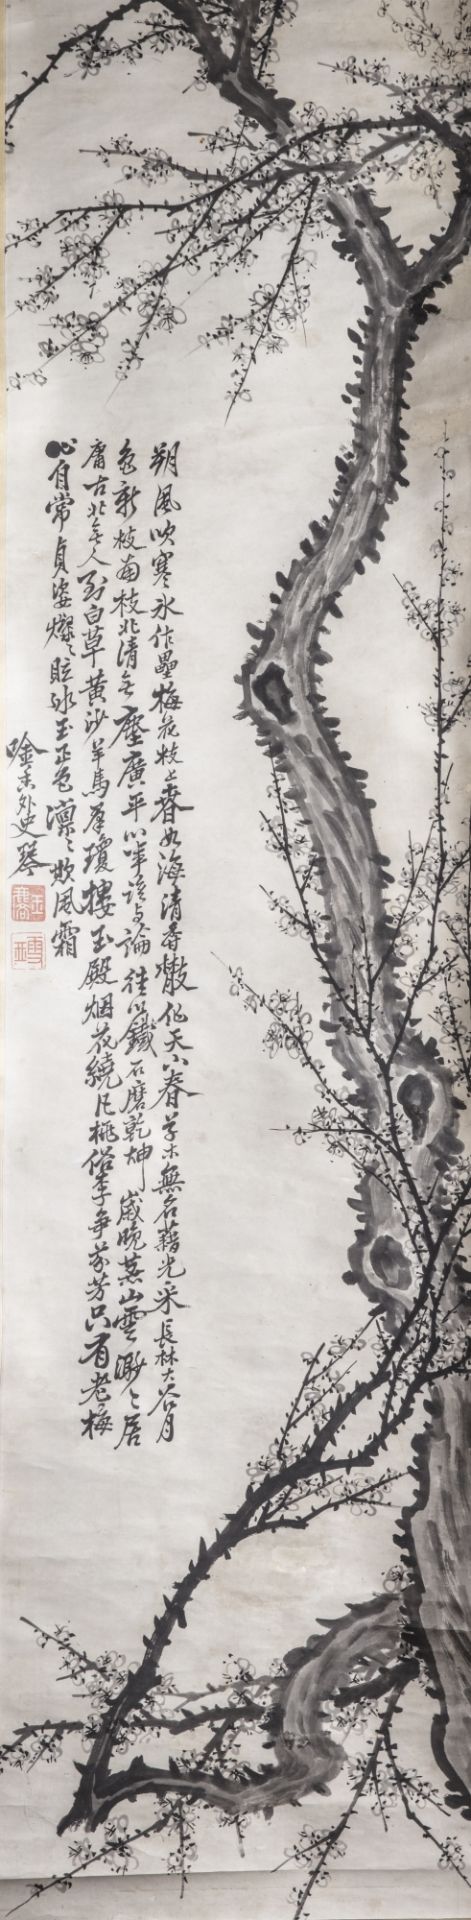 朔風吹寒冰作壘梅花枝上春如海清香散作天下春草木無名藉光采長林大谷月
色新枝南枝北清无塵廣平心事誰與論徒以鐵石磨乾坤歲晚燕山雲渺〻居
庸古北无人到白草黃沙羊馬群瓊樓玉殿烟花繞凡桃俗李爭芬芳只有老梅
心自常貞姿燦〻眩冰玉正色凜〻欺風霜
唫香外史琴